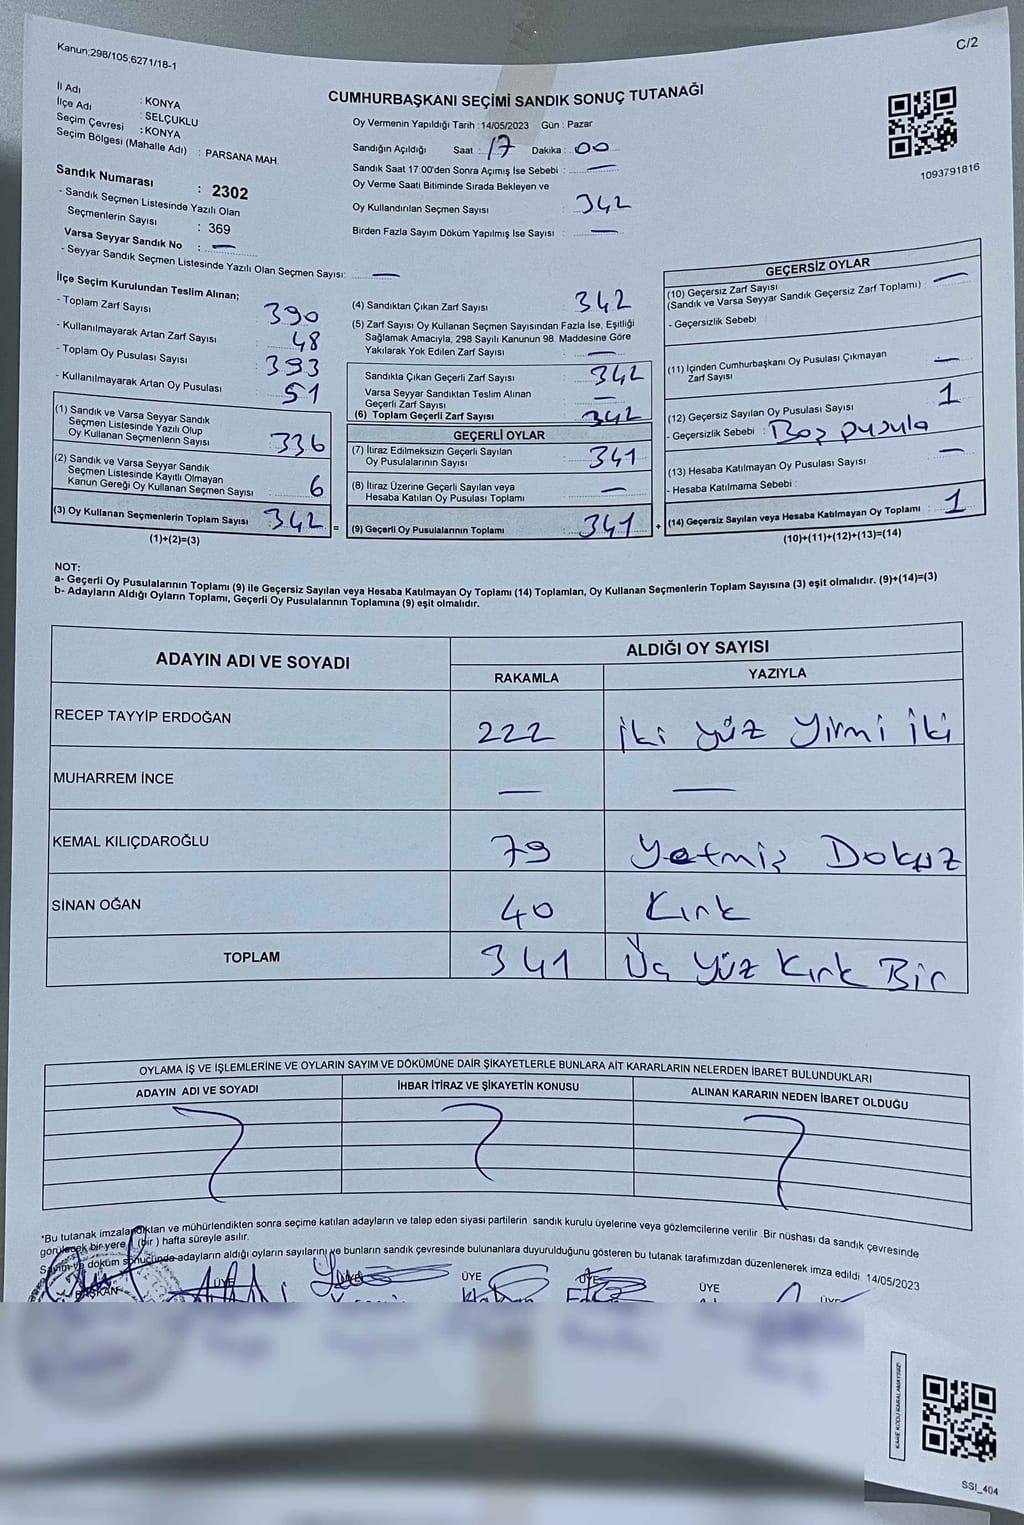 Kanun;298/105,6271/18-1
C/2
CUMHURBAŞKANI SEÇİMİ SANDIK SONUÇ TUTANAĞI
İl Adı : KONYA
İlçe Adı : SELÇUKLU
Seçim Çevresi : KONYA
Seçim Bölgesi (Mahalle Adı) : PARSANA MAH.
Sandık Numarası : 2302
- Sandık Seçmen Listesinde Yazılı Olan
Seçmenlerin Sayısı : 369
Varsa Seyyar Sandık No : —
- Seyyar Sandık Seçmen Listesinde Yazılı Olan Seçmen Sayısı: —
Oy Vermenin Yapıldığı Tarih : 14/05/2023 Gün : Pazar
Sandığın Açıldığı Saat : 17 Dakika : 00
Sandık Saat 17:00'den Sonra Açımış İse Sebebi : —
Oy Verme Saati Bitiminde Sırada Bekleyen ve
Oy Kullandırılan Seçmen Sayısı : 342
Birden Fazla Sayım Döküm Yapılmış İse Sayısı : —
1093791816
İlçe Seçim Kurulundan Teslim Alınan;
- Toplam Zarf Sayısı : 390
- Kullanılmayarak Artan Zarf Sayısı : 48
- Toplam Oy Pusulası Sayısı : 393
- Kullanılmayarak Artan Oy Pusulası : 51
(1) Sandık ve Varsa Seyyar Sandık
Seçmen Listesinde Yazılı Olup
Oy Kullanan Seçmenlerin Sayısı : 336
(2) Sandık ve Varsa Seyyar Sandık
Seçmen Listesinde Kayıtlı Olmayan
Kanun Gereği Oy Kullanan Seçmen Sayısı : 6
(3) Oy Kullanan Seçmenlerin Toplam Sayısı : 342 =
(1)+(2)=(3)
(4) Sandıktan Çıkan Zarf Sayısı : 342
(5) Zarf Sayısı Oy Kullanan Seçmen Sayısından Fazla İse, Eşitliği
Sağlamak Amacıyla, 298 Sayılı Kanunun 98. Maddesine Göre
Yakılarak Yok Edilen Zarf Sayısı : —
Sandıkta Çıkan Geçerli Zarf Sayısı : 342
Varsa Seyyar Sandıktan Teslim Alınan
Geçerli Zarf Sayısı : —
(6) Toplam Geçerli Zarf Sayısı : 342
GEÇERLİ OYLAR
(7) İtiraz Edilmeksizin Geçerli Sayılan
Oy Pusulalarının Sayısı : 341
(8) İtiraz Üzerine Geçerli Sayılan veya
Hesaba Katılan Oy Pusulası Toplamı : —
(9) Geçerli Oy Pusulalarının Toplamı : 341 +
GEÇERSİZ OYLAR
(10) Geçersiz Zarf Sayısı
(Sandık ve Varsa Seyyar Sandık Geçersiz Zarf Toplamı) : —
- Geçersizlik Sebebi :
(11) İçinden Cumhurbaşkanı Oy Pusulası Çıkmayan
Zarf Sayısı : —
(12) Geçersiz Sayılan Oy Pusulası Sayısı : 1
- Geçersizlik Sebebi : Boş pusula
(13) Hesaba Katılmayan Oy Pusulası Sayısı : —
- Hesaba Katılmama Sebebi :
(14) Geçersiz Sayılan veya Hesaba Katılmayan Oy Toplamı : 1
(10)+(11)+(12)+(13)=(14)
NOT:
a- Geçerli Oy Pusulalarının Toplamı (9) ile Geçersiz Sayılan veya Hesaba Katılmayan Oy Toplamı (14) Toplamları, Oy Kullanan Seçmenlerin Toplam Sayısına (3) eşit olmalıdır. (9)+(14)=(3)
b- Adayların Aldığı Oyların Toplamı, Geçerli Oy Pusulalarının Toplamına (9) eşit olmalıdır.
ADAYIN ADI VE SOYADI ALDIĞI OY SAYISI
RAKAMLA YAZIYLA
RECEP TAYYİP ERDOĞAN 222 İki yüz Yirmi iki
MUHARREM İNCE — —
KEMAL KILIÇDAROĞLU 79 Yetmiş Dokuz
SİNAN OĞAN 40 Kırk
TOPLAM 341 Üç Yüz Kırk Bir
OYLAMA İŞ VE İŞLEMLERİNE VE OYLARIN SAYIM VE DÖKÜMÜNE DAİR ŞİKAYETLERLE BUNLARA AİT KARARLARIN NELERDEN İBARET BULUNDUKLARI
ADAYIN ADI VE SOYADI İHBAR İTİRAZ VE ŞİKAYETİN KONUSU ALINAN KARARIN NEDEN İBARET OLDUĞU
*Bu tutanak imzalandıktan ve mühürlendikten sonra seçime katılan adayların ve talep eden siyasi partilerin sandık kurulu üyelerine veya gözlemcilerine verilir. Bir nüshası da sandık çevresinde
görülecek bir yere 1 (bir ) hafta süreyle asılır.
Sayım ve döküm sonucunda adayların aldığı oyların sayılarını ve bunların sandık çevresinde bulunanlara duyurulduğunu gösteren bu tutanak tarafımızdan düzenlenerek imza edildi 14/05/2023
BAŞKAN ÜYE ÜYE ÜYE ÜYE ÜYE
SSI_404